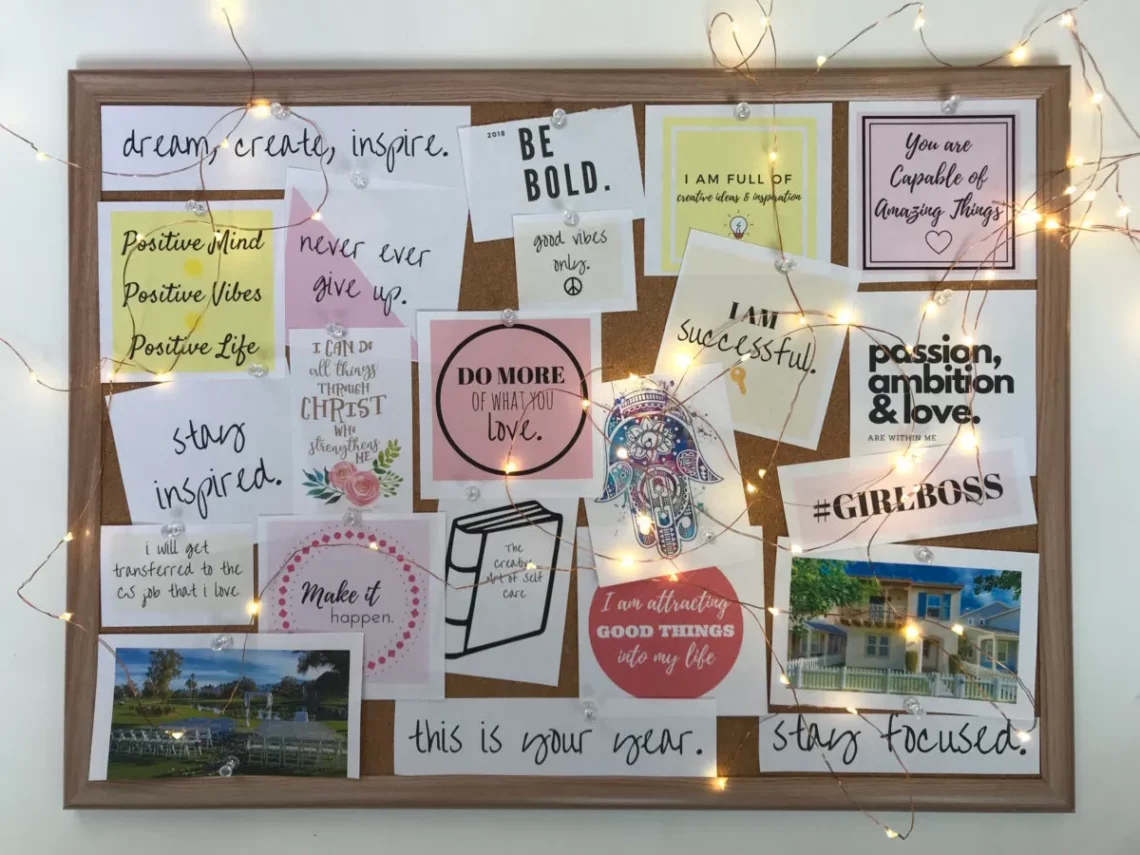 dream, create, inspire.
2018
BE
BOLD.
I AM FULL OF
creative ideas & inspiration
You are
Capable of
Amazing Things
Positive Mind
Positive Vibes
Positive Life
never ever
give up.
good vibes
only.
I AM
successful.
passion,
ambition
& love.
ARE WITHIN ME
I CAN DO
all things
THROUGH
CHRIST
WHO
strengthens
ME
DO MORE
OF WHAT YOU
love.
stay
inspired.
#GIRLBOSS
i will get
transferred to the
CS job that i love
Make it
happen.
The
creative
Art of Self
care
I am attracting
GOOD THINGS
into my life
this is your year.
stay focused.